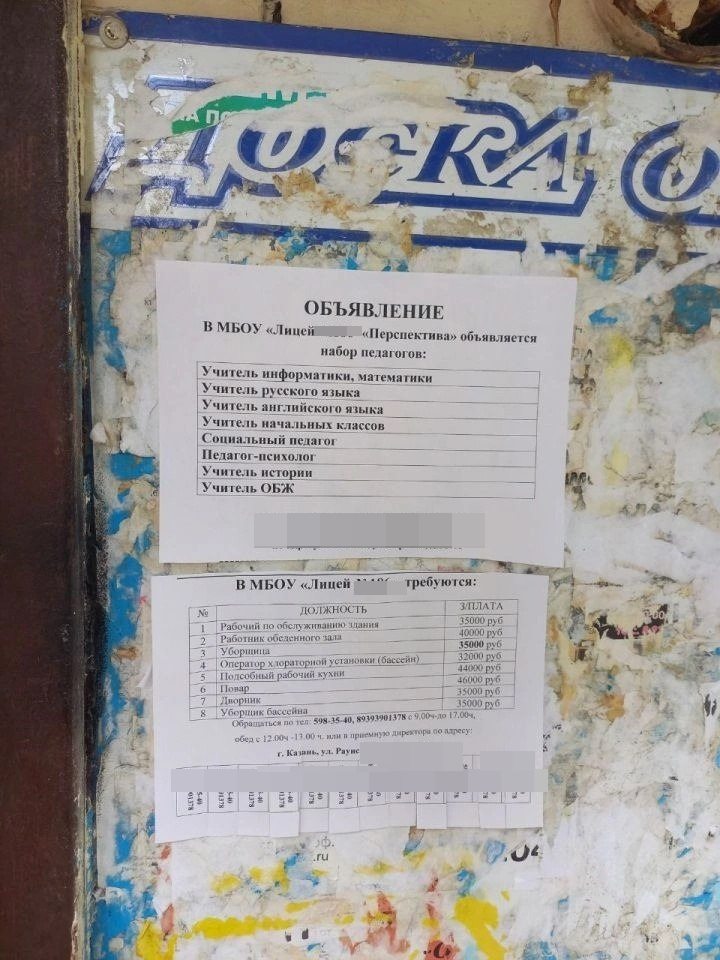 ДОСКА О
ОБЪЯВЛЕНИЕ
В МБОУ «Лицей «Перспектива» объявляется
набор педагогов:
Учитель информатики, математики
Учитель русского языка
Учитель английского языка
Учитель начальных классов
Социальный педагог
Педагог-психолог
Учитель истории
Учитель ОБЖ
В МБОУ «Лицей требуются:
№ ДОЛЖНОСТЬ З/ПЛАТА
1 Рабочий по обслуживанию здания 35000 руб
2 Работник обеденного зала 40000 руб
3 Уборщица 35000 руб
4 Оператор хлораторной установки (бассейн) 32000 руб
5 Подсобный рабочий кухни 44000 руб
6 Повар 46000 руб
7 Дворник 35000 руб
8 Уборщик бассейна 35000 руб
Обращаться по тел: 598-35-40, 89393901378 с 9.00ч-до 17.00ч,
обед с 12.00ч -13.00 ч. или в приемную директора по адресу:
г. Казань, ул. Рауис
.ru